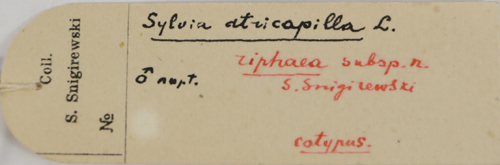 Coll.
S. Snigirewski
№
Sylvia atricapilla L.
riphaea subsp. n.
S. Snigirewski
♂ нарт.
cotypus.